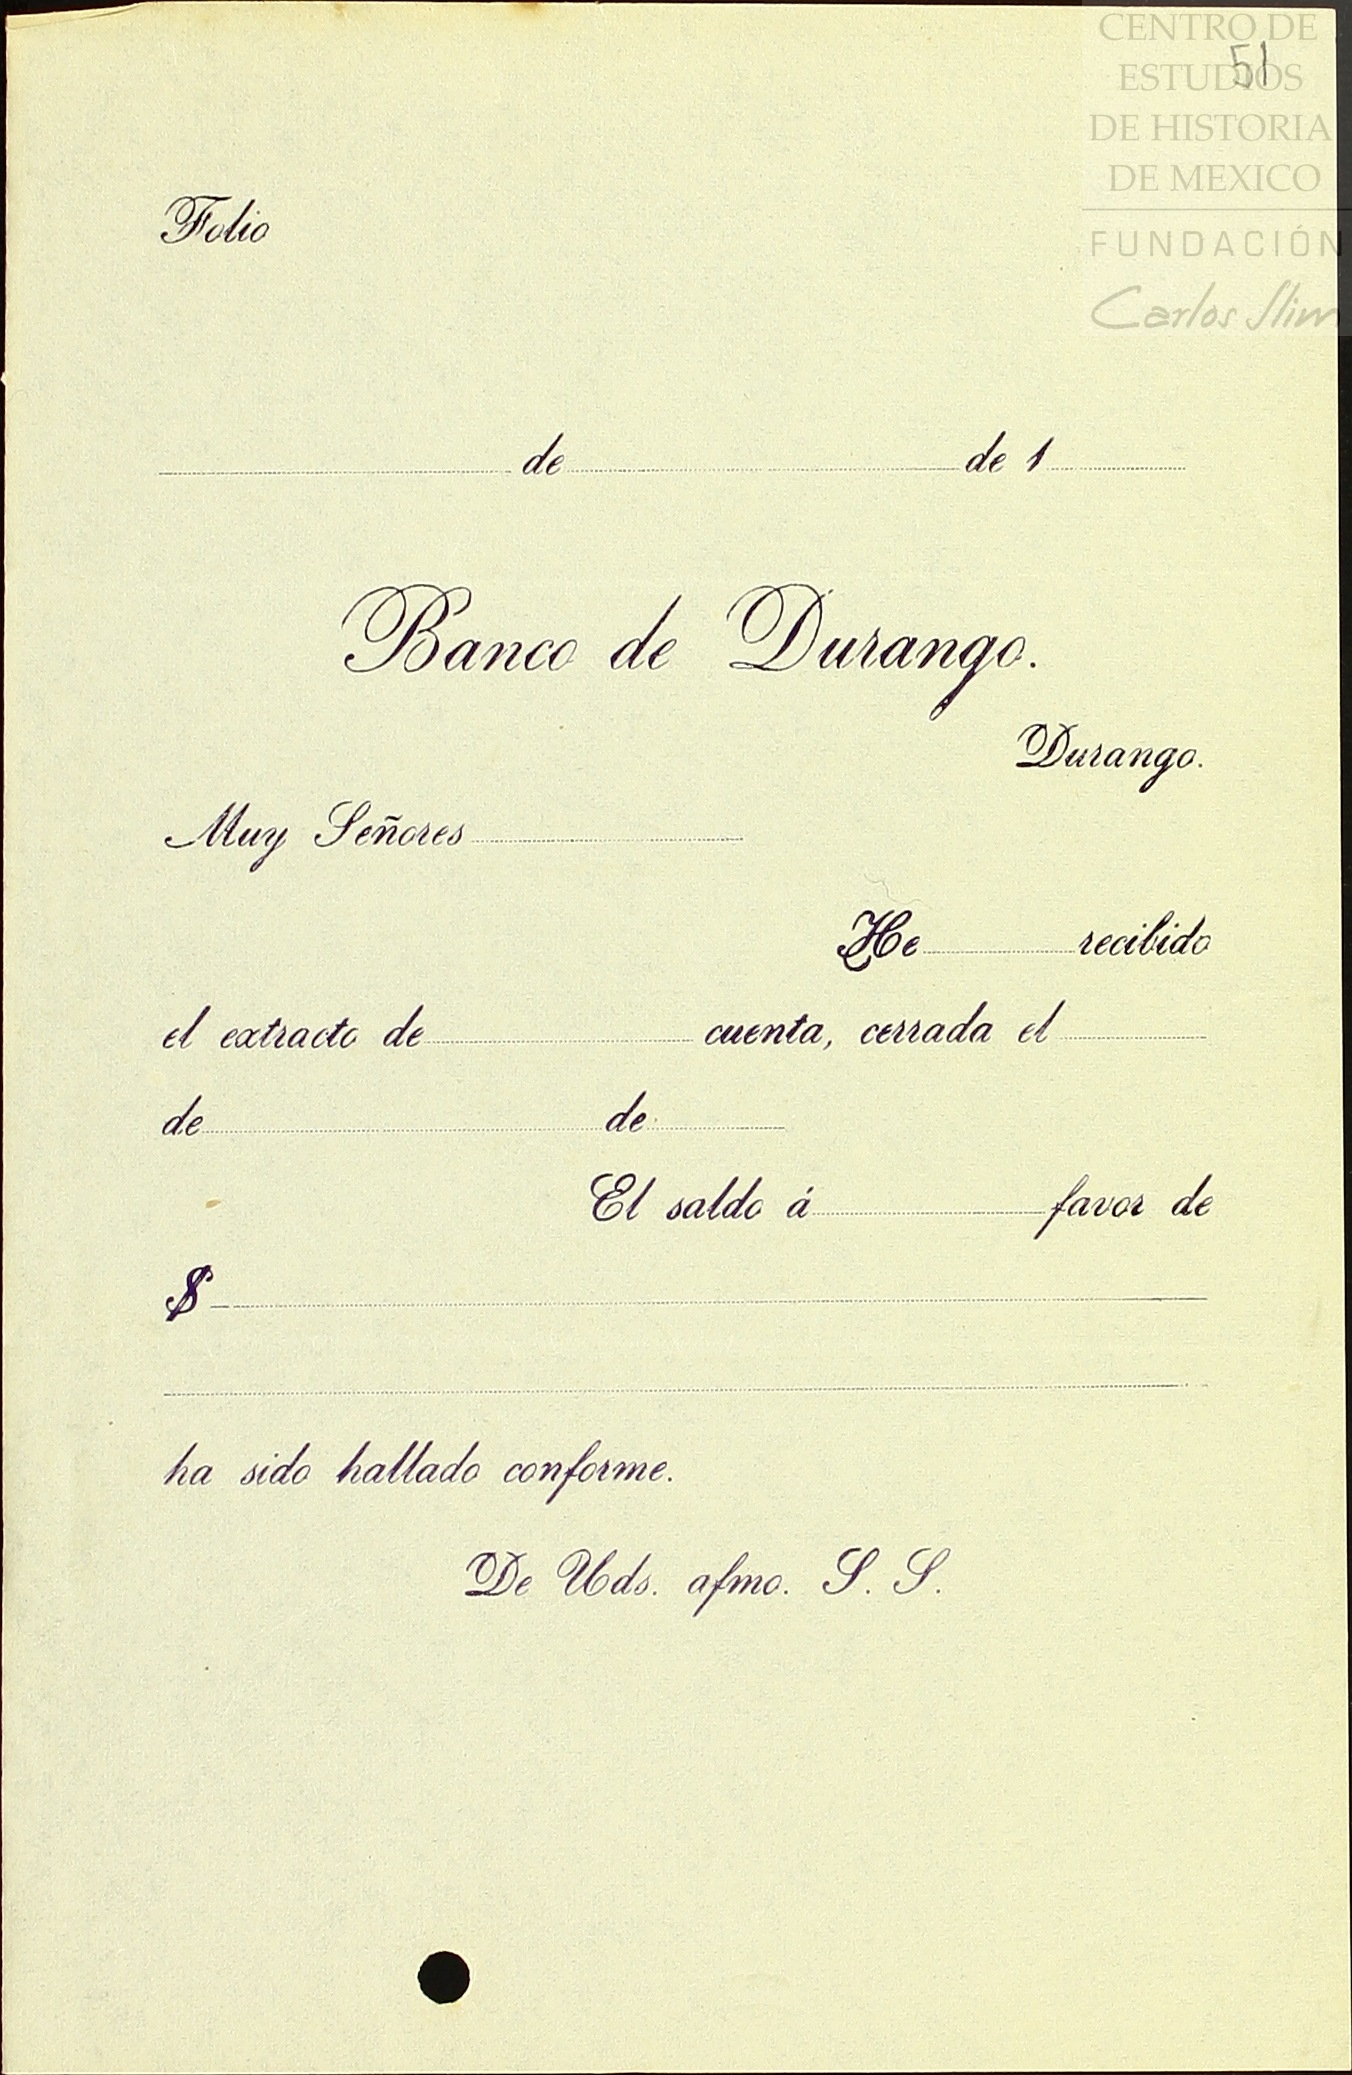 CENTRO DE
ESTUDIOS
DE HISTORIA
DE MEXICO
FUNDACIÓN
Carlos Slim
51
Folio
de de 1
Banco de Durango.
Durango.
Muy Señores
He recibido
el extracto de cuenta, cerrada el
de de
El saldo á favor de
$
ha sido hallado conforme.
De Uds. afmo. S. S.